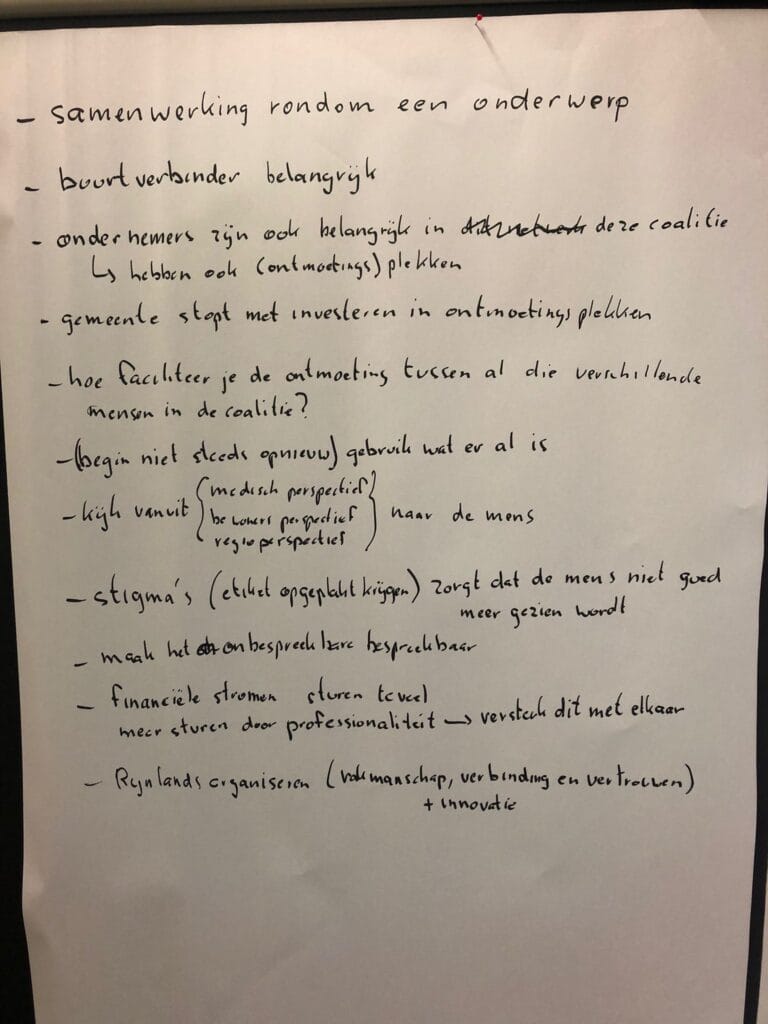 - samenwerking rondom een onderwerp
- buurtverbinder belangrijk
- ondernemers zijn ook belangrijk in deze coalitie
↳ hebben ook (ontmoetings) plekken
- gemeente stopt met investeren in ontmoetingsplekken
- hoe faciliteer je de ontmoeting tussen al die verschillende
mensen in de coalitie?
- (begin niet steeds opnieuw) gebruik wat er al is
- kijk vanuit { medisch perspectief
bewoners perspectief
regioperspectief } naar de mens
- stigma's (etiket opgeplakt krijgen) zorgt dat de mens niet goed
meer gezien wordt
- maak het onbespreekbare bespreekbaar
- financiële stromen sturen teveel
meer sturen door professionaliteit → versterk dit met elkaar
- Rijnlands organiseren (vakmanschap, verbinding en vertrouwen)
+ innovatie